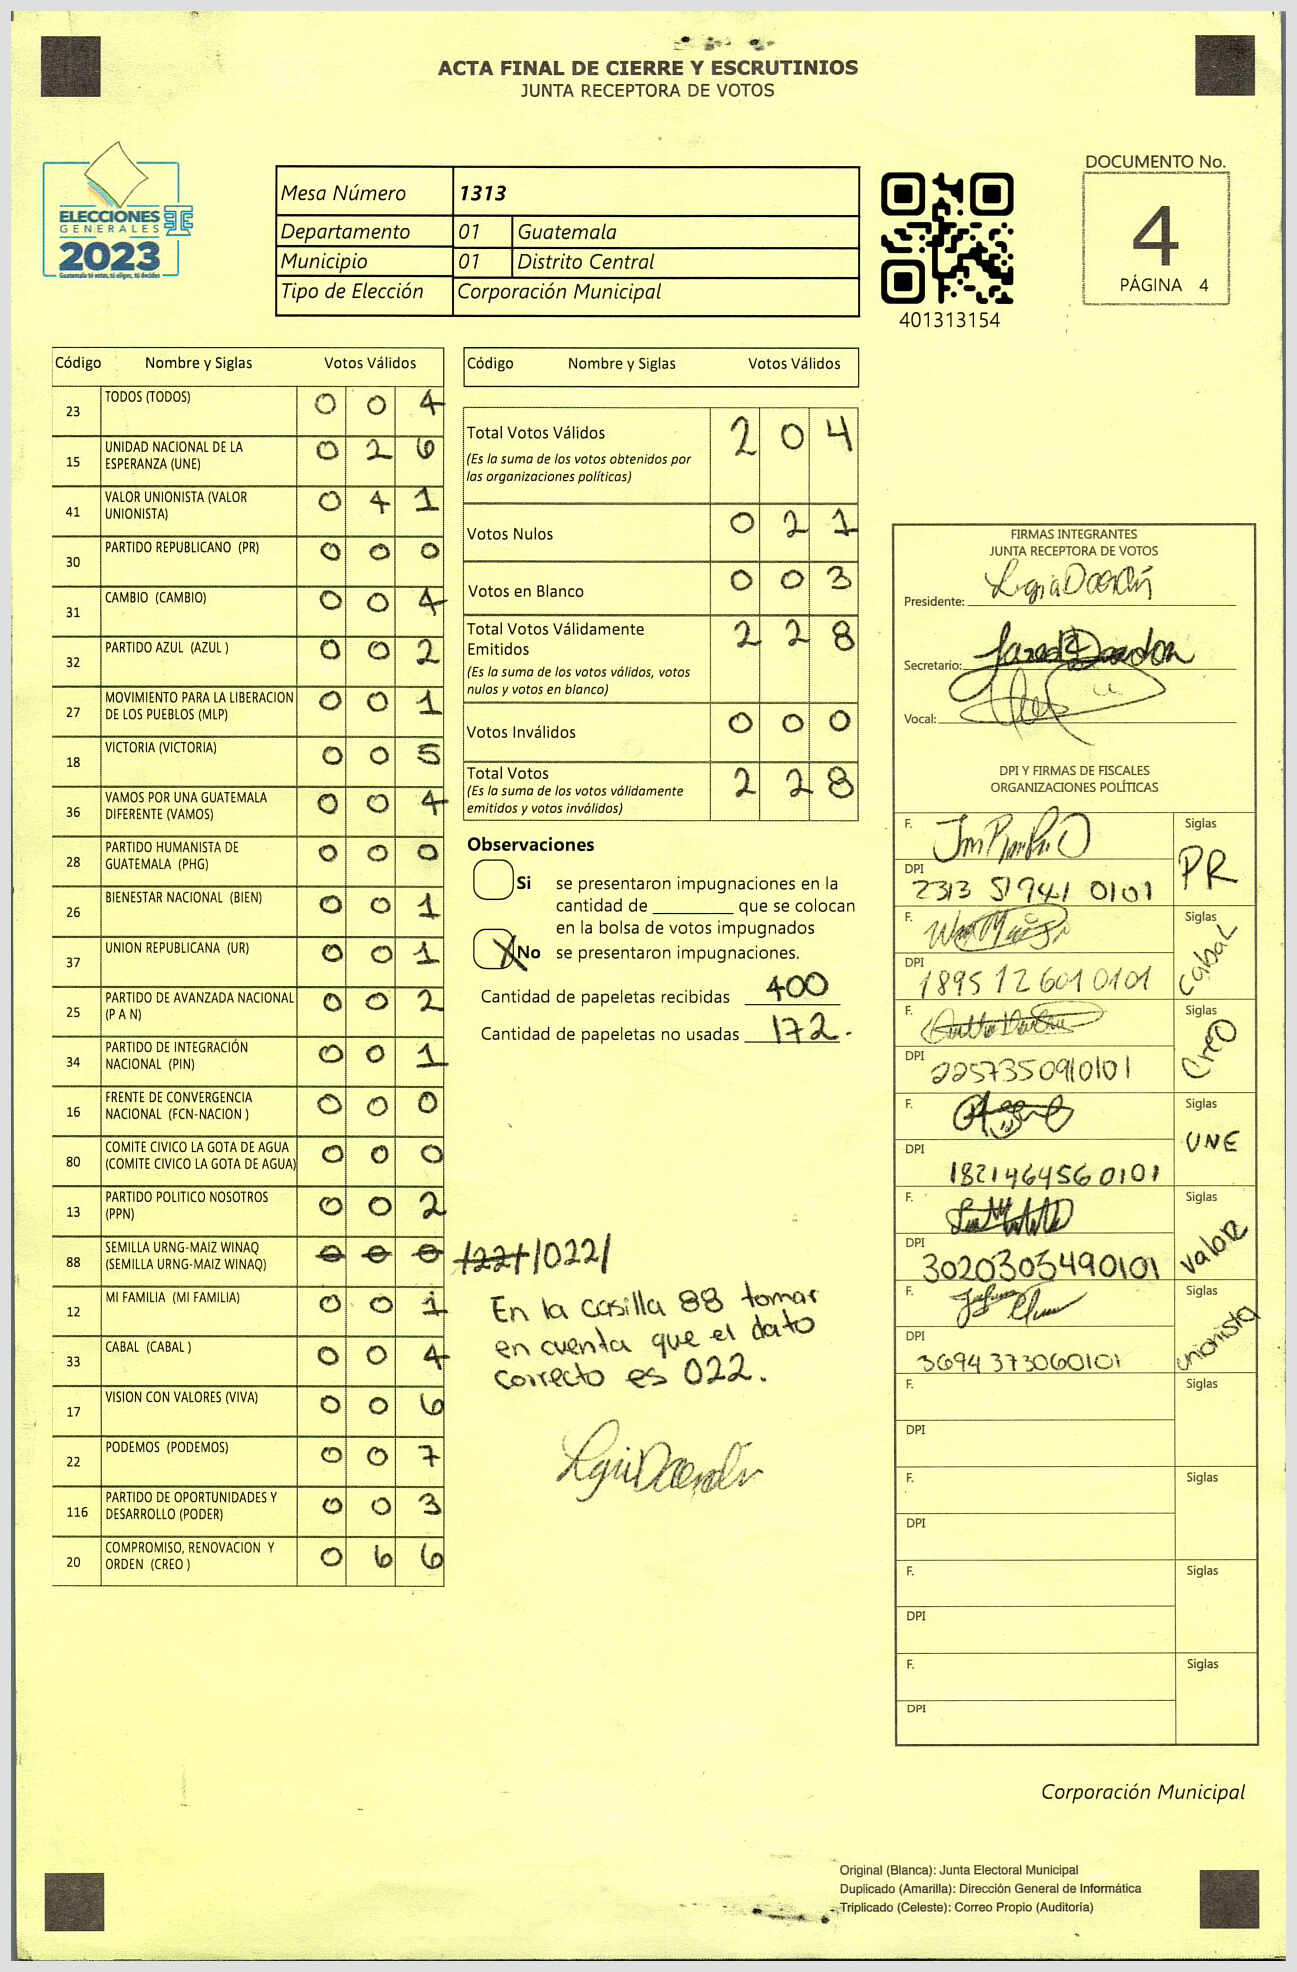 ACTA FINAL DE CIERRE Y ESCRUTINIOS
JUNTA RECEPTORA DE VOTOS
ELECCIONES
GENERALES
2023
Guatemala tú votas, tú eliges, tú decides
Mesa Número 1313
Departamento 01 Guatemala
Municipio 01 Distrito Central
Tipo de Elección Corporación Municipal
401313154
DOCUMENTO No.
4
PÁGINA 4
Código Nombre y Siglas Votos Válidos
23 TODOS (TODOS) 0 0 4
15 UNIDAD NACIONAL DE LA ESPERANZA (UNE) 0 2 6
41 VALOR UNIONISTA (VALOR UNIONISTA) 0 4 1
30 PARTIDO REPUBLICANO (PR) 0 0 0
31 CAMBIO (CAMBIO) 0 0 4
32 PARTIDO AZUL (AZUL ) 0 0 2
27 MOVIMIENTO PARA LA LIBERACION DE LOS PUEBLOS (MLP) 0 0 1
18 VICTORIA (VICTORIA) 0 0 5
36 VAMOS POR UNA GUATEMALA DIFERENTE (VAMOS) 0 0 4
28 PARTIDO HUMANISTA DE GUATEMALA (PHG) 0 0 0
26 BIENESTAR NACIONAL (BIEN) 0 0 1
37 UNION REPUBLICANA (UR) 0 0 1
25 PARTIDO DE AVANZADA NACIONAL (P A N) 0 0 2
34 PARTIDO DE INTEGRACIÓN NACIONAL (PIN) 0 0 1
16 FRENTE DE CONVERGENCIA NACIONAL (FCN-NACION ) 0 0 0
80 COMITE CIVICO LA GOTA DE AGUA (COMITE CIVICO LA GOTA DE AGUA) 0 0 0
13 PARTIDO POLITICO NOSOTROS (PPN) 0 0 2
88 SEMILLA URNG-MAIZ WINAQ (SEMILLA URNG-MAIZ WINAQ) 0 0 0 /022/
12 MI FAMILIA (MI FAMILIA) 0 0 1
33 CABAL (CABAL ) 0 0 4
17 VISION CON VALORES (VIVA) 0 0 6
22 PODEMOS (PODEMOS) 0 0 7
116 PARTIDO DE OPORTUNIDADES Y DESARROLLO (PODER) 0 0 3
20 COMPROMISO, RENOVACION Y ORDEN (CREO ) 0 6 6
Código Nombre y Siglas Votos Válidos
Total Votos Válidos 2 0 4
(Es la suma de los votos obtenidos por
las organizaciones políticas)
Votos Nulos 0 2 1
Votos en Blanco 0 0 3
Total Votos Válidamente Emitidos 2 2 8
(Es la suma de los votos válidos, votos
nulos y votos en blanco)
Votos Inválidos 0 0 0
Total Votos 2 2 8
(Es la suma de los votos válidamente
emitidos y votos inválidos)
Observaciones
Si se presentaron impugnaciones en la
cantidad de ________ que se colocan
en la bolsa de votos impugnados
X No se presentaron impugnaciones.
Cantidad de papeletas recibidas 400
Cantidad de papeletas no usadas 172.
En la casilla 88 tomar
en cuenta que el dato
correcto es 022.
FIRMAS INTEGRANTES
JUNTA RECEPTORA DE VOTOS
Presidente:
Secretario:
Vocal:
DPI Y FIRMAS DE FISCALES
ORGANIZACIONES POLÍTICAS
F. Siglas PR
DPI 2313 51941 0101
F. Siglas Cabal
DPI 1895 12601 0101
F. Siglas CREO
DPI 2257350910101
F. Siglas UNE
DPI 1821464560101
F. Siglas Valor
DPI 3020303490101
F. Siglas unionista
DPI 3694 373060101
F. Siglas
DPI
F. Siglas
DPI
F. Siglas
DPI
F. Siglas
DPI
Corporación Municipal
Original (Blanca): Junta Electoral Municipal
Duplicado (Amarilla): Dirección General de Informática
Triplicado (Celeste): Correo Propio (Auditoría)